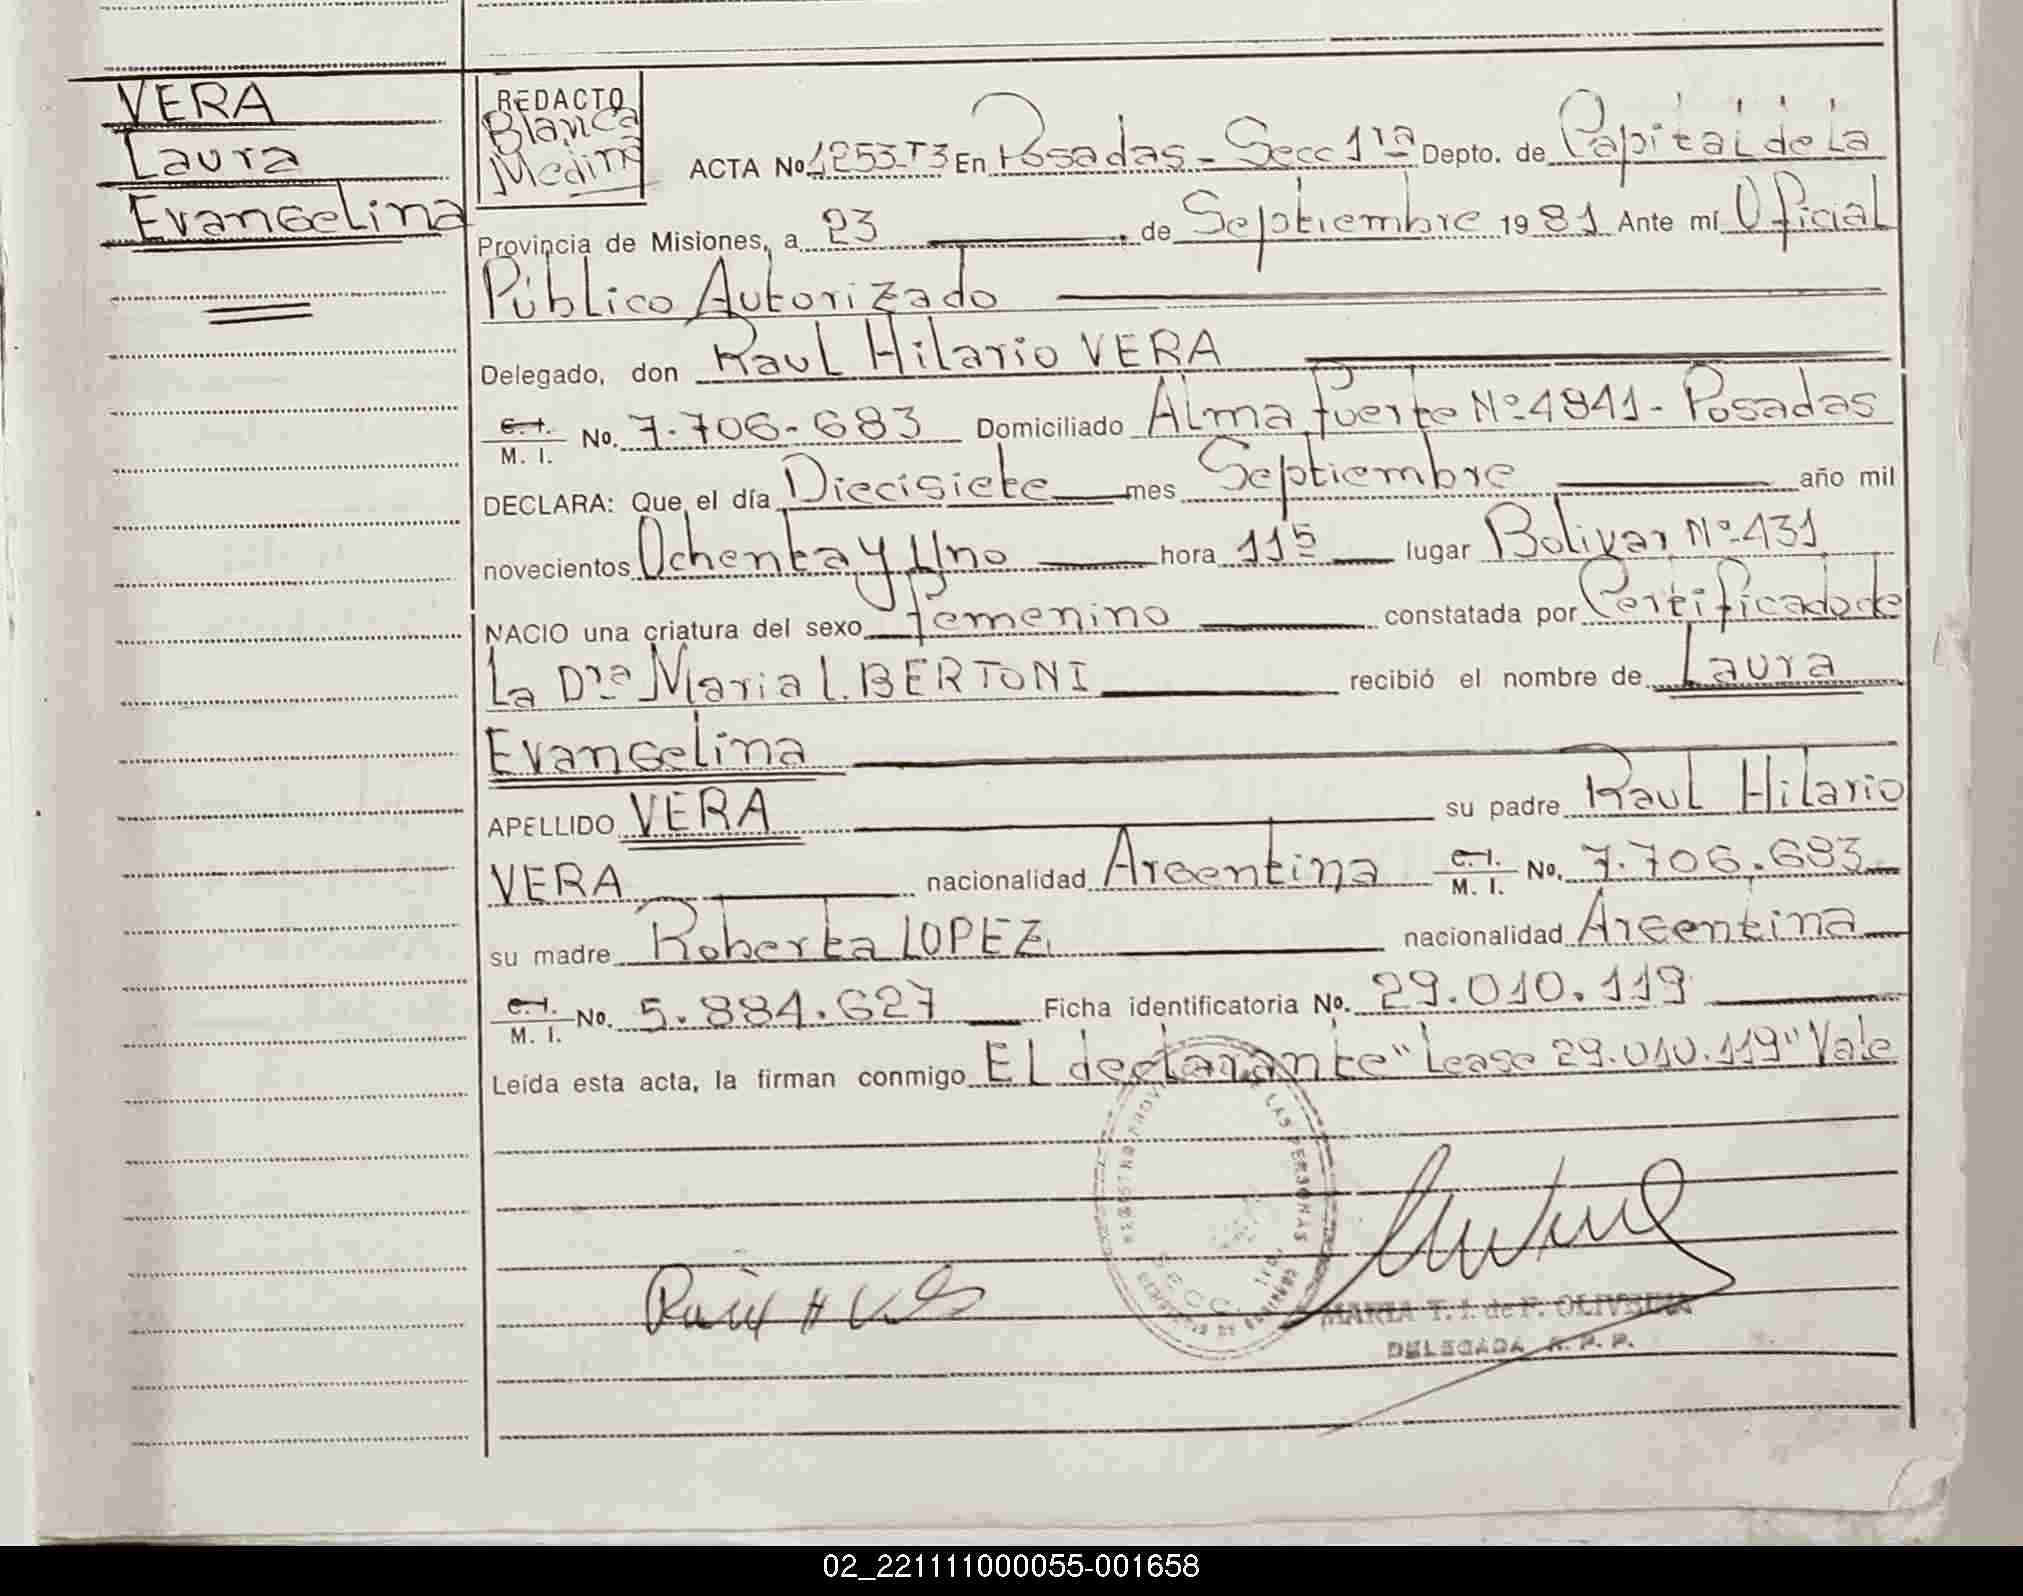 VERA
Laura
Evangelina
REDACTO
Blanca
Medina
ACTA No 1253-T3 En Posadas - Secc 1ra Depto. de Capital de La
Provincia de Misiones, a 23 de Septiembre 1981 Ante mí Oficial
Público Autorizado
Delegado, don Raul Hilario VERA
C. I.
M. I. No. 7.706.683 Domiciliado Alma fuerte Nº 4841 - Posadas
DECLARA: Que el día Diecisiete mes Septiembre año mil
novecientos Ochenta y Uno hora 11 5 lugar Bolivar Nº 431
NACIO una criatura del sexo femenino constatada por Certificado de
La Dra Maria L. BERTONI recibió el nombre de Laura
Evangelina
APELLIDO VERA su padre Raul Hilario
VERA nacionalidad Argentina C. I.
M. I. No. 7.706.683
su madre Roberta LOPEZ nacionalidad Argentina
C. I.
M. I. No. 5.884.627 Ficha identificatoria No. 29.010.119
Leída esta acta, la firman conmigo El declarante "Lease 29.010.119" Vale
LAS PERSONAS
SECC.
Raúl H
MARIA T. I. de F. OLIVEIRA
DELEGADA R. P. P.
02_221111000055-001658